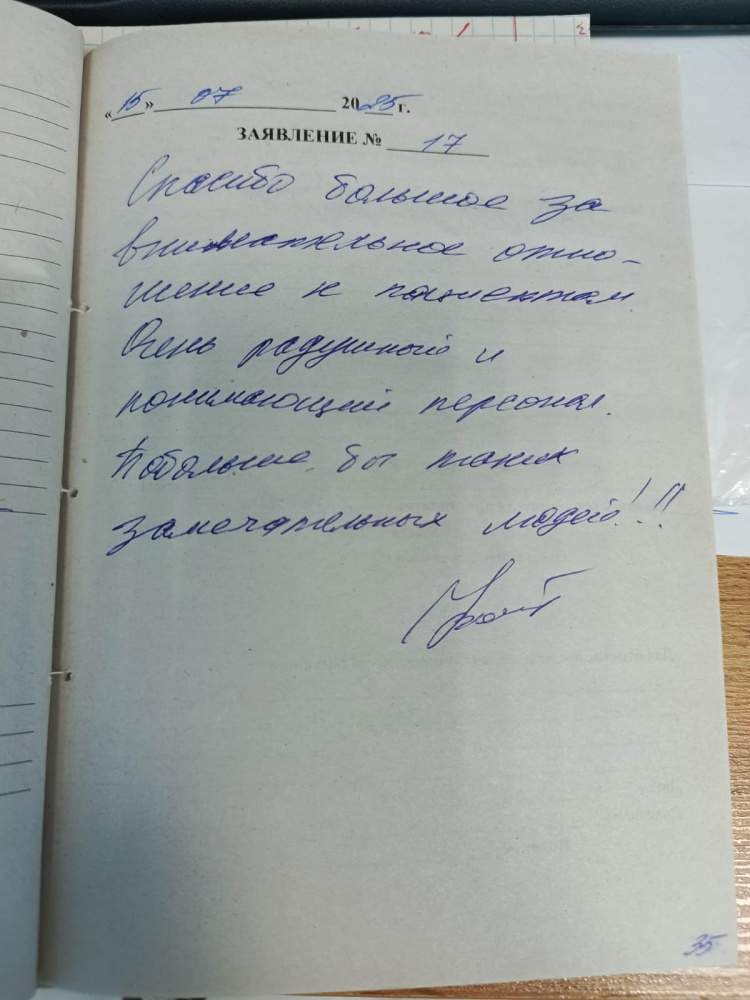 «15» 07 2025 г.
ЗАЯВЛЕНИЕ № 17
Спасибо большое за
внимательное отно-
шение к пациентам.
Очень радушный и
понимающий персонал.
Побольше бы таких
замечательных людей!!!
35